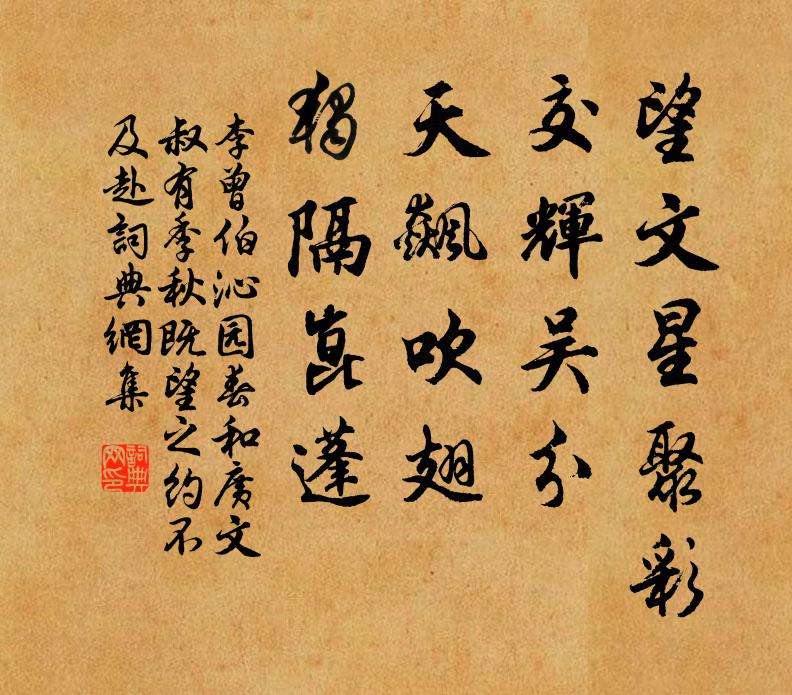 望文星聚彩
交輝吴分
天飆吹翅
獨隔崑蓬
李曾伯沁园春和廣文
叔有季秋既望之約不
及赴詞典網集
詞典网印